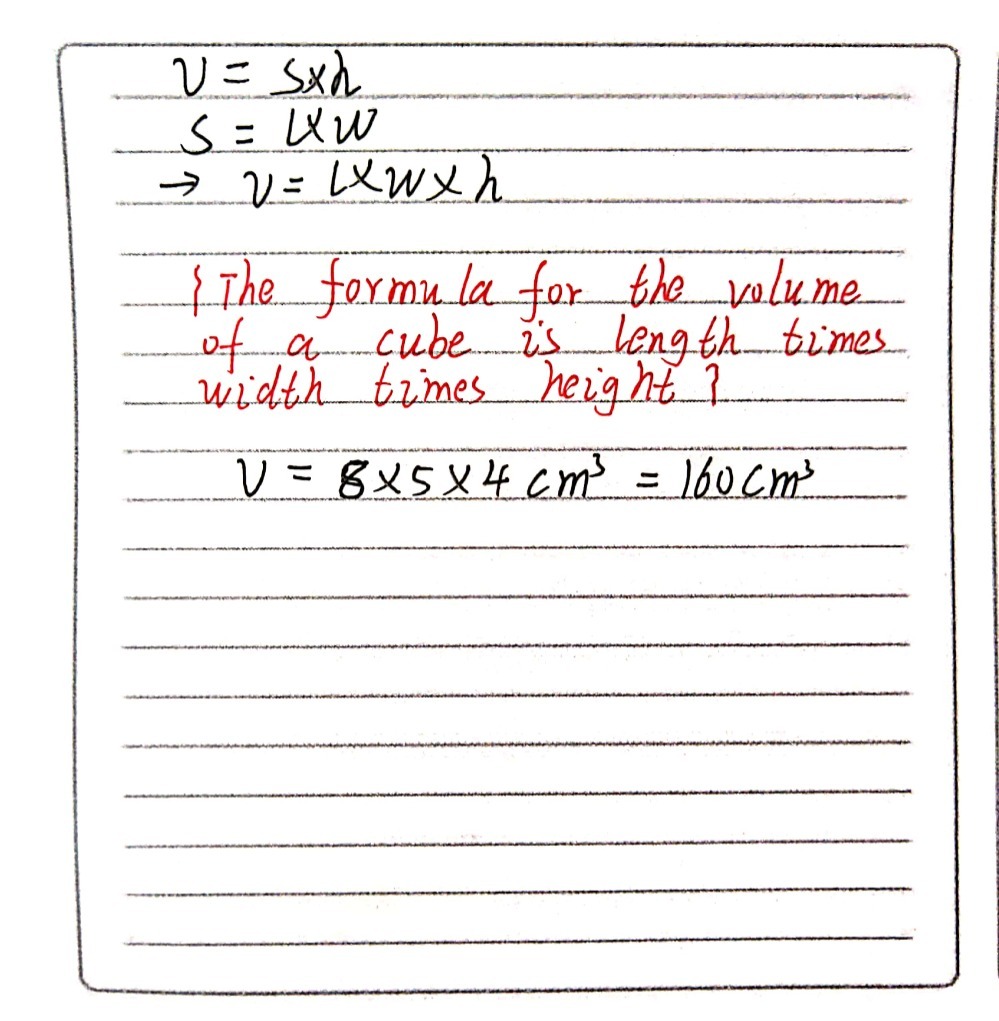 V = S×h
S = l×w
→ V = l×w×h
{The formula for the volume
of a cube is length times
width times height}
V = 8×5×4 cm³ = 160cm³